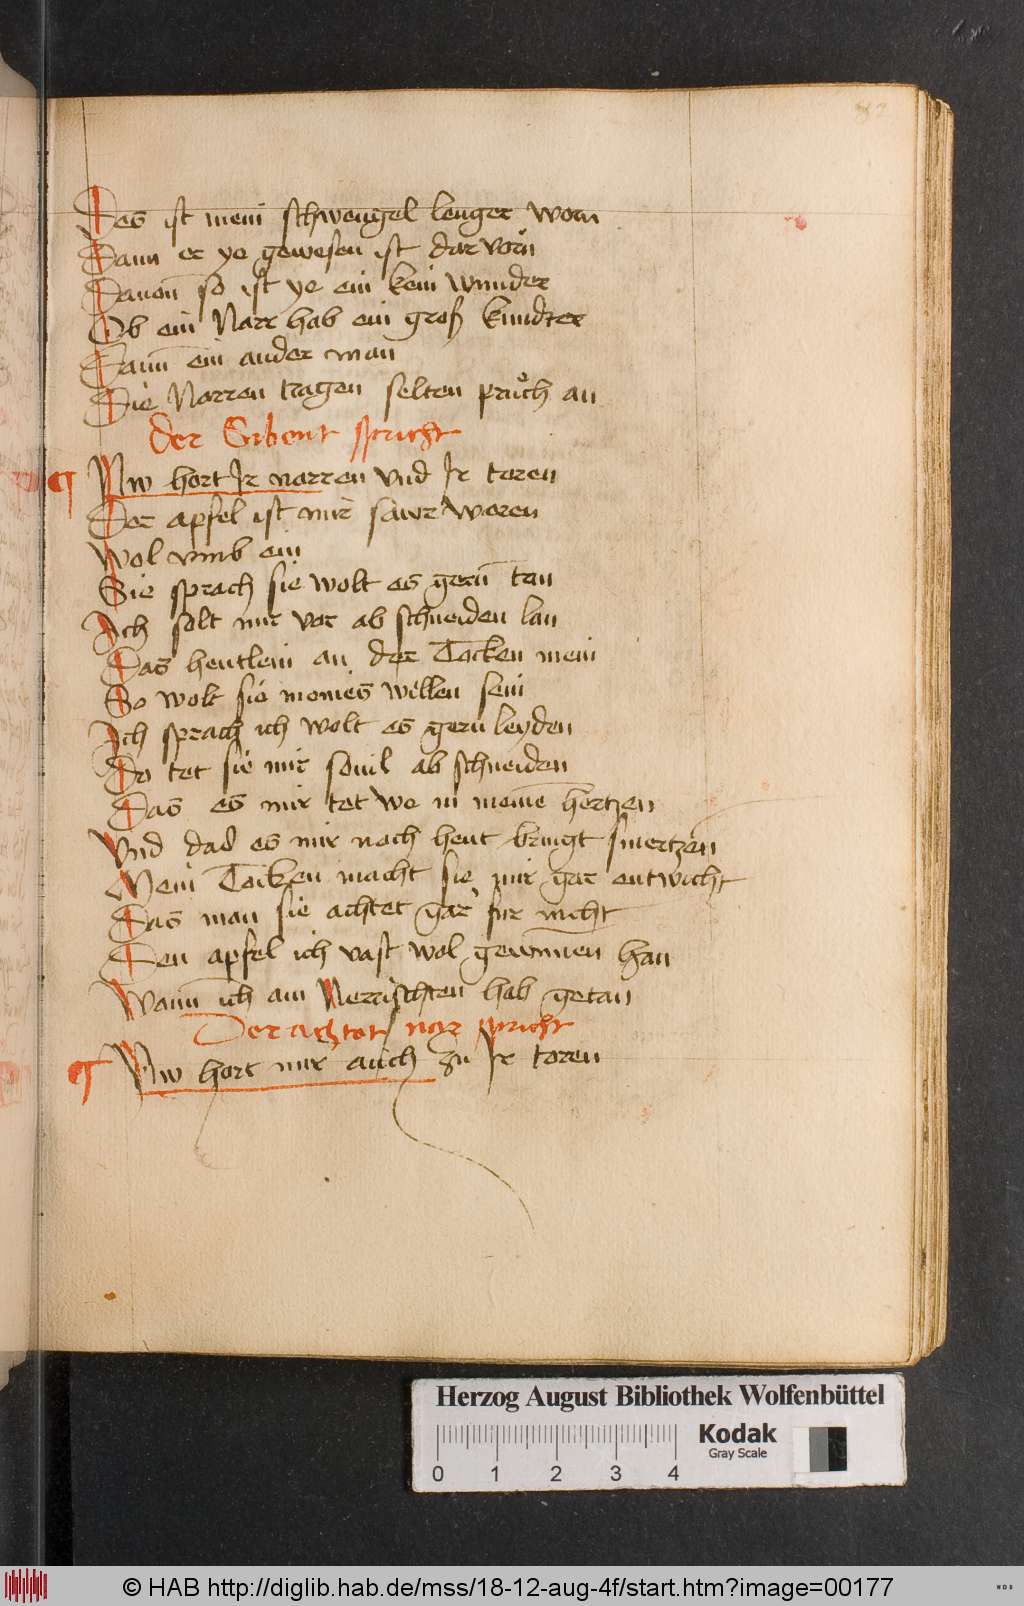 82
Des ist mein schwengel lenger worn
Dann er ye gewesen ist dar vorn
Dauon so ist ye ein kein wunder
Ob ein Narr hab ein groß kundter
Dann ein ander man
Die Narren tragen selten pruͦch an
der Sibent spricht
¶ Nw hort Ir narren vnd Ir toren
Der apfel ist mir sawr woren
Wol vmb ein
Sie sprach sie wolt es gern tan
Ich solt mir vor ab schneiden lan
Das hentlein an der Tocken mein
So wolt sie meines willen sein
Ich sprach ich wolt es gern leyden
Do tet sie mir souil ab schneiden
Das es mir tet we in meinē hertzen
Vnd das es mir noch heut bringt smertzen
Mein Tocken macht sie mir gar entwicht
Das man sie achtet gar fur nicht
Den apfel ich vast wol gewinnen han
Wann ich am Nerrischten hab getan
Der achtet nar spricht
¶ Nw hort mir auch zu Ir toren
Herzog August Bibliothek Wolfenbüttel
Kodak
Gray Scale
0 1 2 3 4
© HAB http://diglib.hab.de/mss/18-12-aug-4f/start.htm?image=00177